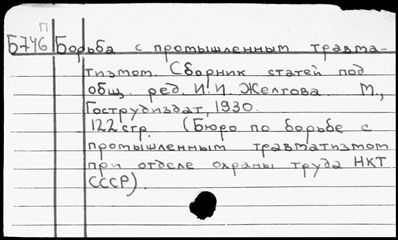 П
Б746 Борьба с промышленным травма-
тизмом. Сборник статей под
общ. ред. И.И. Желтова М.,
Гострудиздат, 1930.
122 стр. (Бюро по борьбе с
промышленным травматизмом
при отделе охраны труда НКТ
СССР).